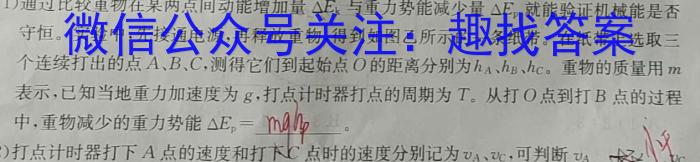 1)通过比较重物在某两点间动能增加量 ΔEₖ 与重力势能减少量 ΔE 就能验证机械能是否
微信公众号关注：趣找答案
守恒。
三个连续打出的点 A、B、C,测得它们到起始点 O 的距离分别为 h_A、h_B、h_C。重物的质量用 m
表示,已知当地重力加速度为 g,打点计时器打点的周期为 T。从打 O 点到打 B 点的过程
中,重物减少的重力势能 ΔEₚ= 。
)打点计时器打下 A 点的速度和打下 C 点时的速度分别记为 v_A、v_C,可判断 v_A